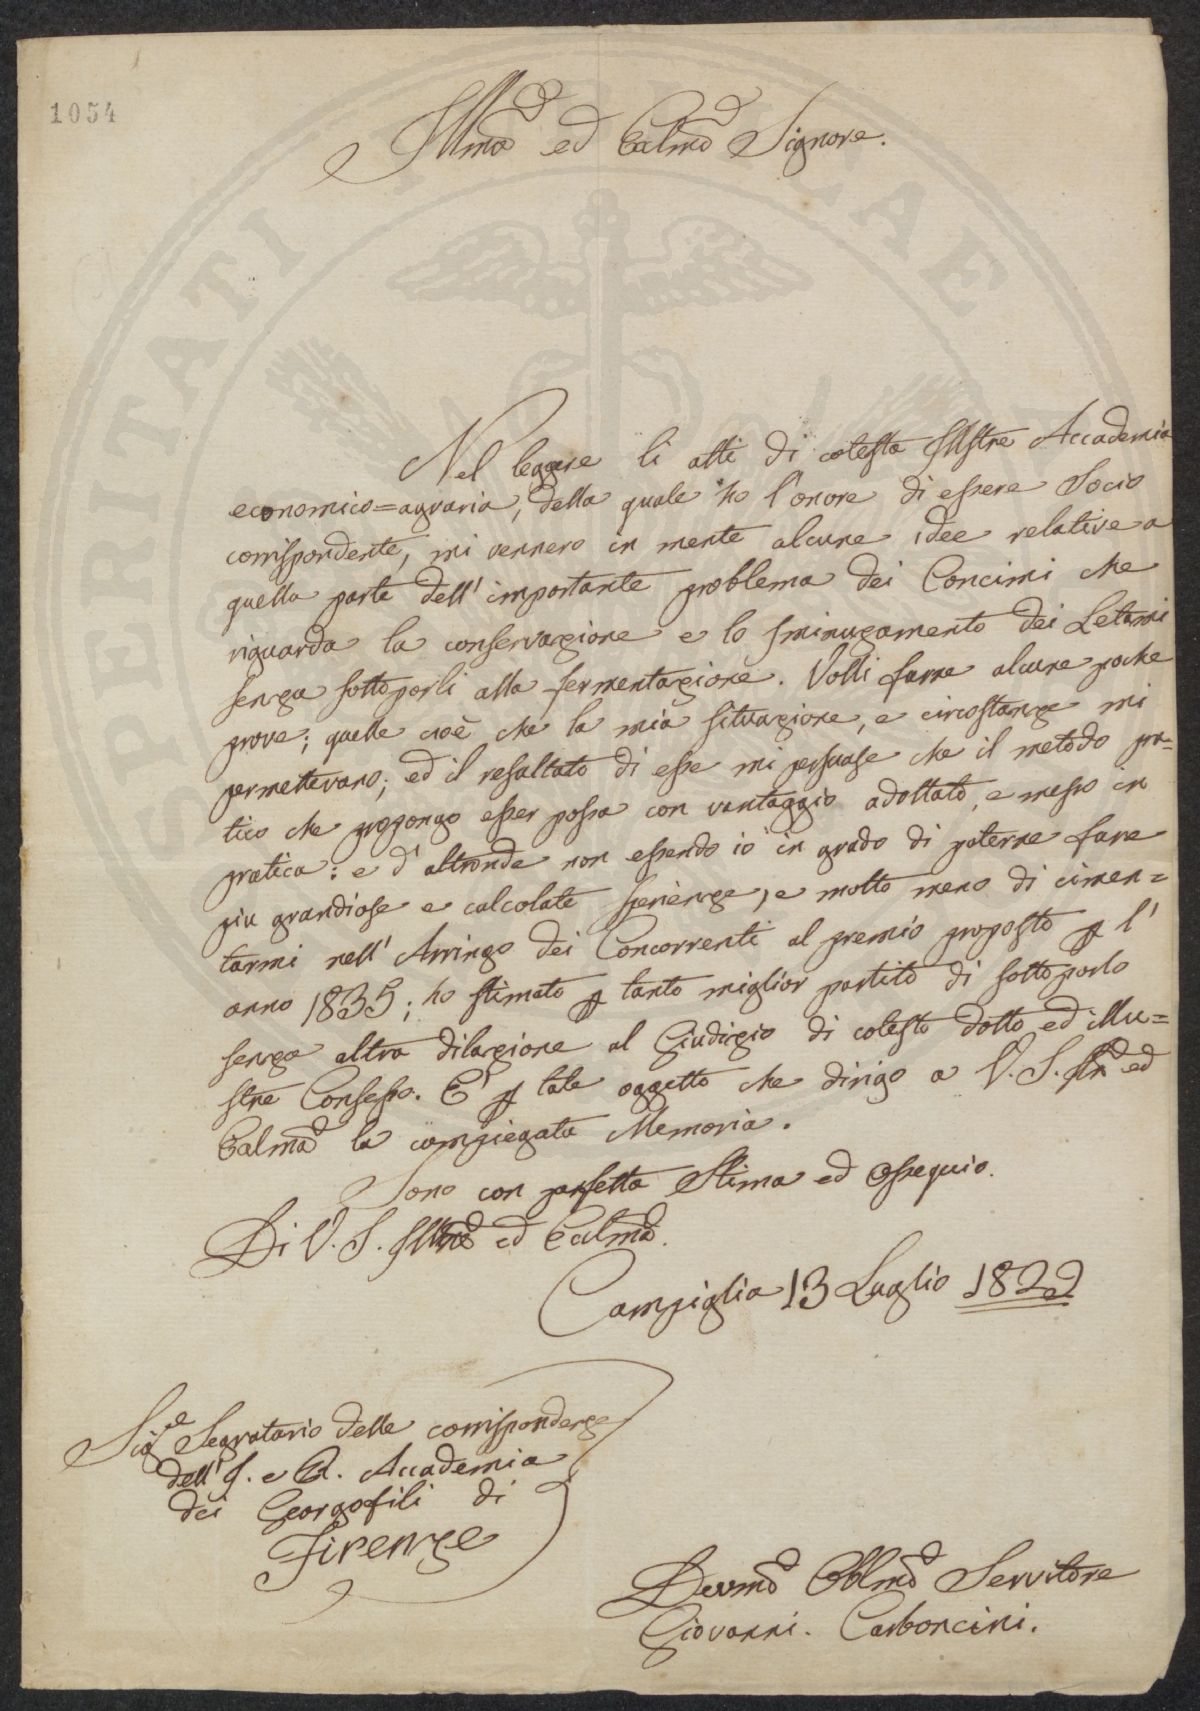 1054
Illmo ed Eccllmo Signore.
Nel leggere li atti di cotesta Illstre Accademia
economico=agraria, della quale ho l'onore di essere Socio
corrispondente, mi vennero in mente alcune idee relative a
quella parte dell'importante problema dei Concimi che
riguarda la conservazione e lo sminuzamento dei Letami
senza sottoporli alla fermentazione. Volli farne alcune poche
prove; quelle cioè che la mia situazione, e circostanze mi
permettevano; ed il resultato di esse mi persuase che il metodo pra=
tico che propongo esser possa con vantaggio adottato, e messo in
pratica: e d'altronde non essendo io in grado di poterne fare
piu grandiose e calcolate sperienze, e molto meno di cimen=
tarmi nell'Arringo dei Concorrenti al premio proposto p l'
anno 1835; ho stimato p tanto miglior partito di sottoporlo
senza altra dilazione al Giudizio di cotesto dotto, ed illu=
stre Consesso. E' p tale oggetto che dirigo a V. S. ed
la compiegata Memoria.
Sono con perfetta Stima ed Ossequio.
Di V. S. Illma ed
Campiglia 13 Luglio 1822
Sige Segratario delle corrispondenze
dell'I. e R. Accademia
dei Georgofili di
Firenze
Devmo Obblmo Servitore
Giovanni. Carboncini.
PERITATI PUBLICAE